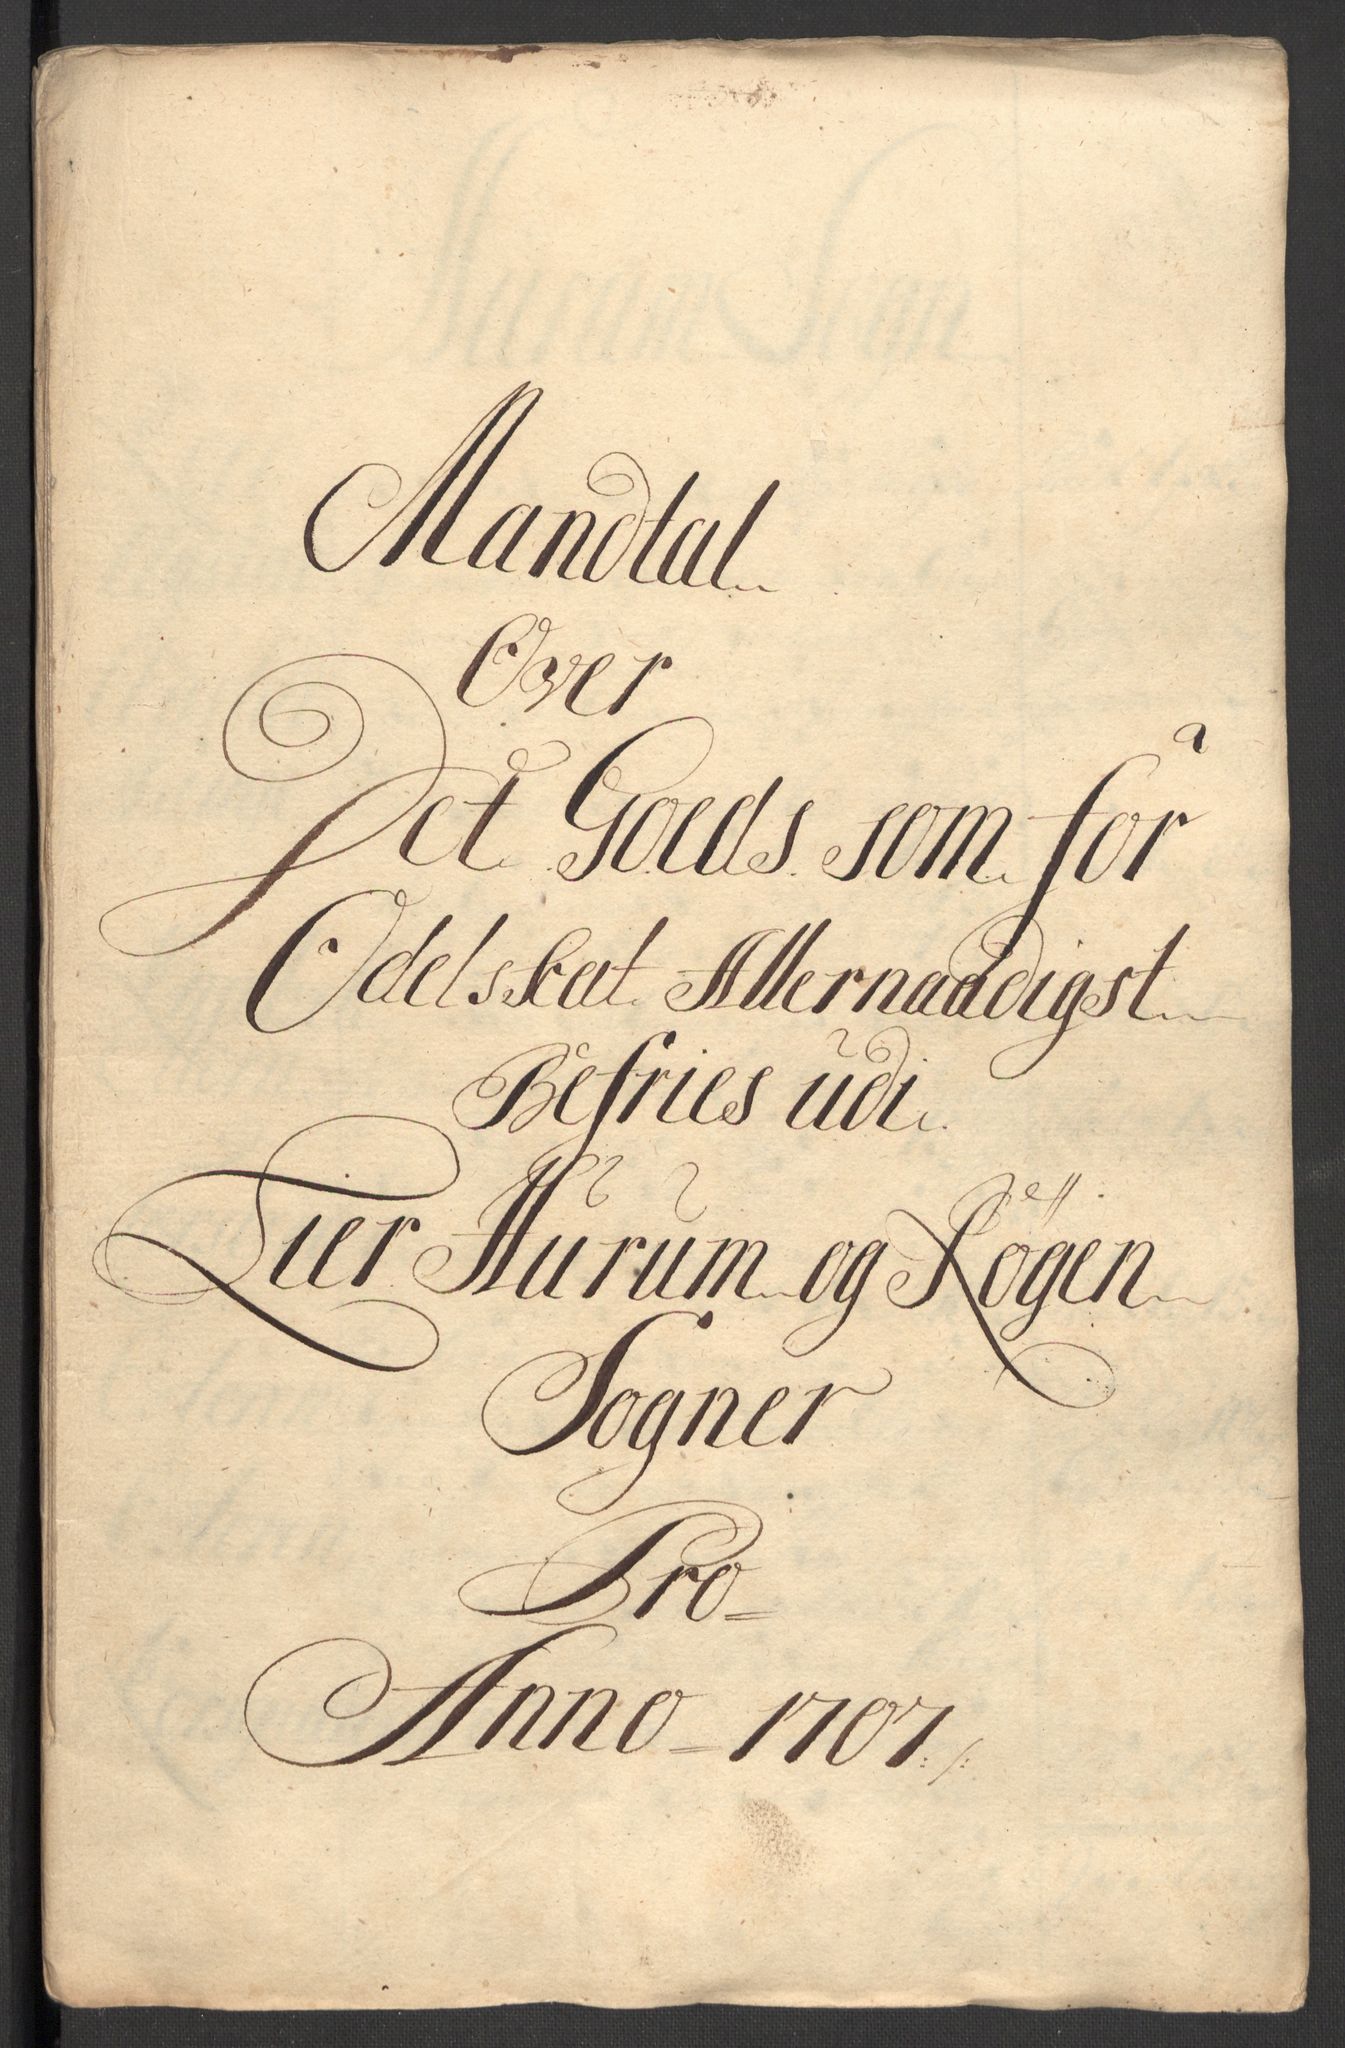 Mandtal
Over
Det Goeds som for
Odelsskat Allernaadigst
Befries udi
Lier Hurum og Røgen
Sogner
Pro
Anno 1707